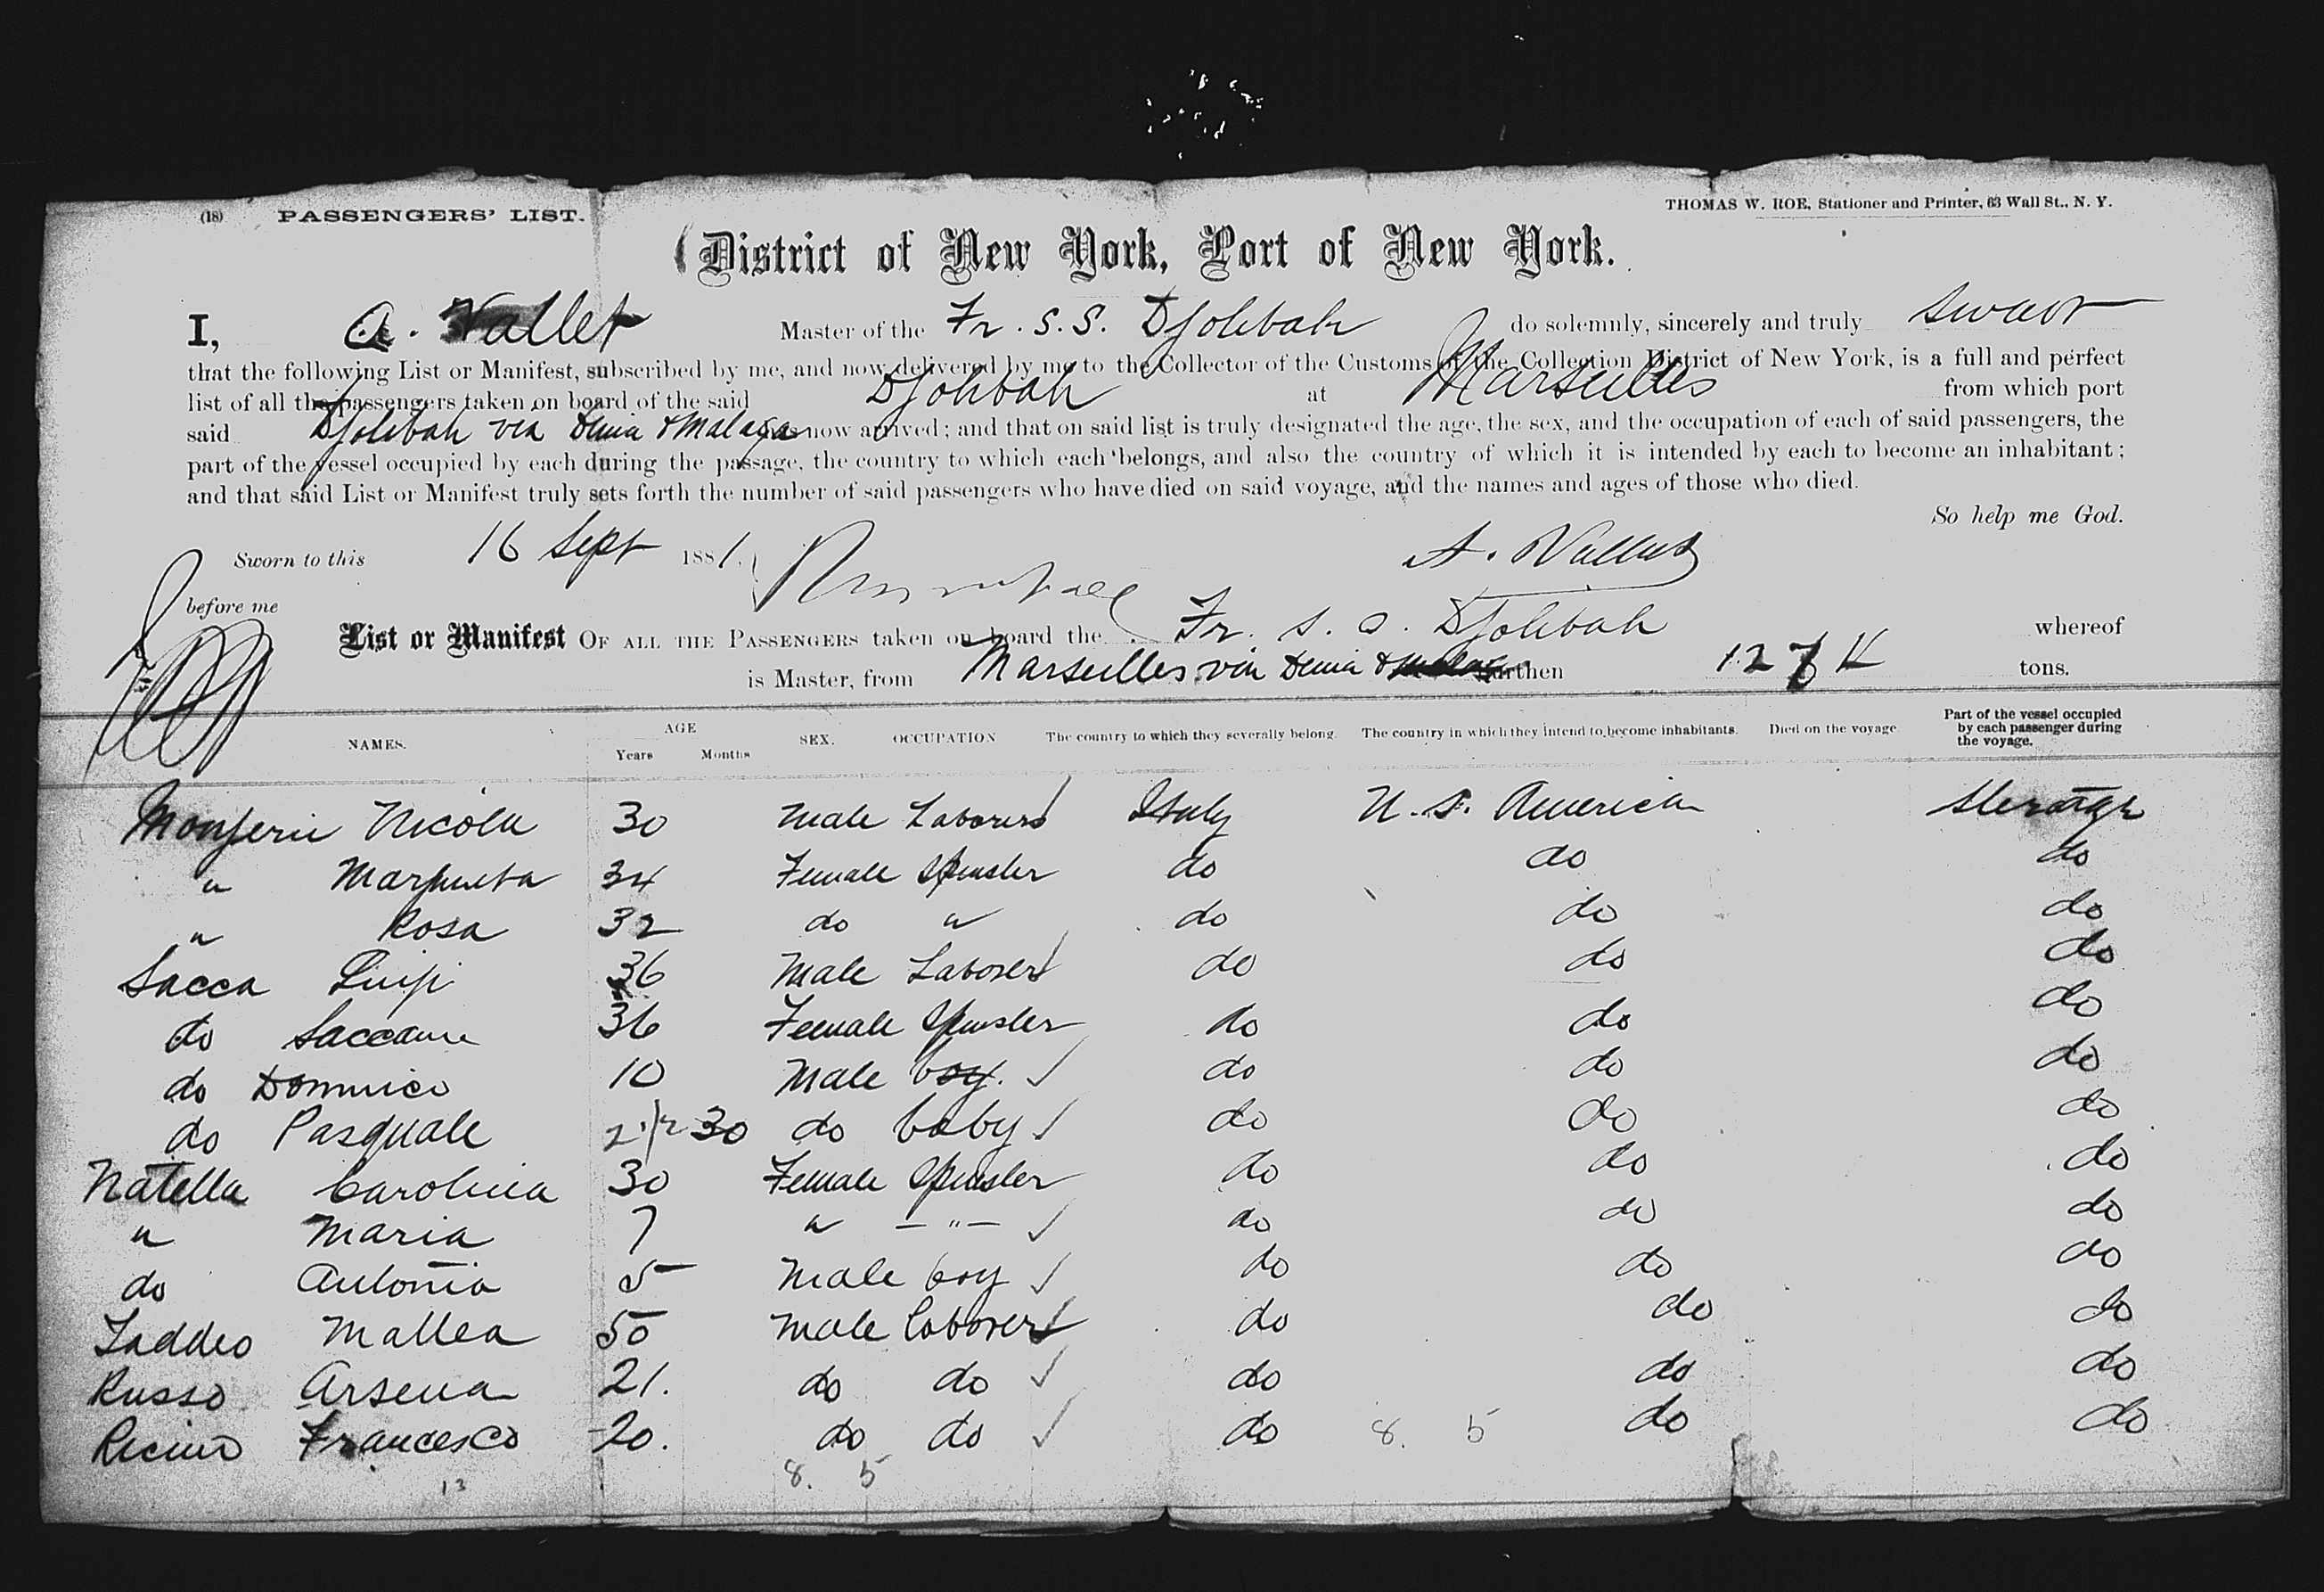 (18) PASSENGERS' LIST.
THOMAS W. ROE, Stationer and Printer, 63 Wall St., N. Y.
District of New York, Port of New York.
I, A. Vallet Master of the Fr. S. S. Djolibah do solemnly, sincerely and truly swear
that the following List or Manifest, subscribed by me, and now delivered by me to the Collector of the Customs of the Collection District of New York, is a full and perfect
list of all the passengers taken on board of the said Djolibah at Marseilles from which port
said Djolibah via Denia & Malaga has now arrived; and that on said list is truly designated the age, the sex, and the occupation of each of said passengers, the
part of the vessel occupied by each during the passage, the country to which each belongs, and also the country of which it is intended by each to become an inhabitant;
and that said List or Manifest truly sets forth the number of said passengers who have died on said voyage, and the names and ages of those who died.
So help me God.
Sworn to this 16 Sept 1881. A. Vallet
before me
List or Manifest OF ALL THE PASSENGERS taken on board the Fr. S. S. Djolibah whereof
is Master, from Marseilles via Denia & Malaga burthen tons.
NAMES. AGE Years Months SEX. OCCUPATION The country to which they severally belong. The country in which they intend to become inhabitants. Died on the voyage Part of the vessel occupied by each passenger during the voyage.
Nicola 30 Male Laborer Italy U. S. America Sterage
" 34 Female Spinster do do do
" Rosa 32 do " do do do
Sacca Luigi 36 Male Laborer do do do
do 36 Female Spinster do do do
do Domnico 10 Male boy. do do do
do Pasquale 2 1/2 30 do baby do do do
Natella Carolina 30 Female Spinster do do do
" Maria 7 " — " — do do do
do Antonia 5 Male boy do do do
Taddeo Mattea 50 Male Laborer do do do
Russo Arsena 21. do do do do do
Francesco 20. do do do 8. 5 do do
13 8. 5